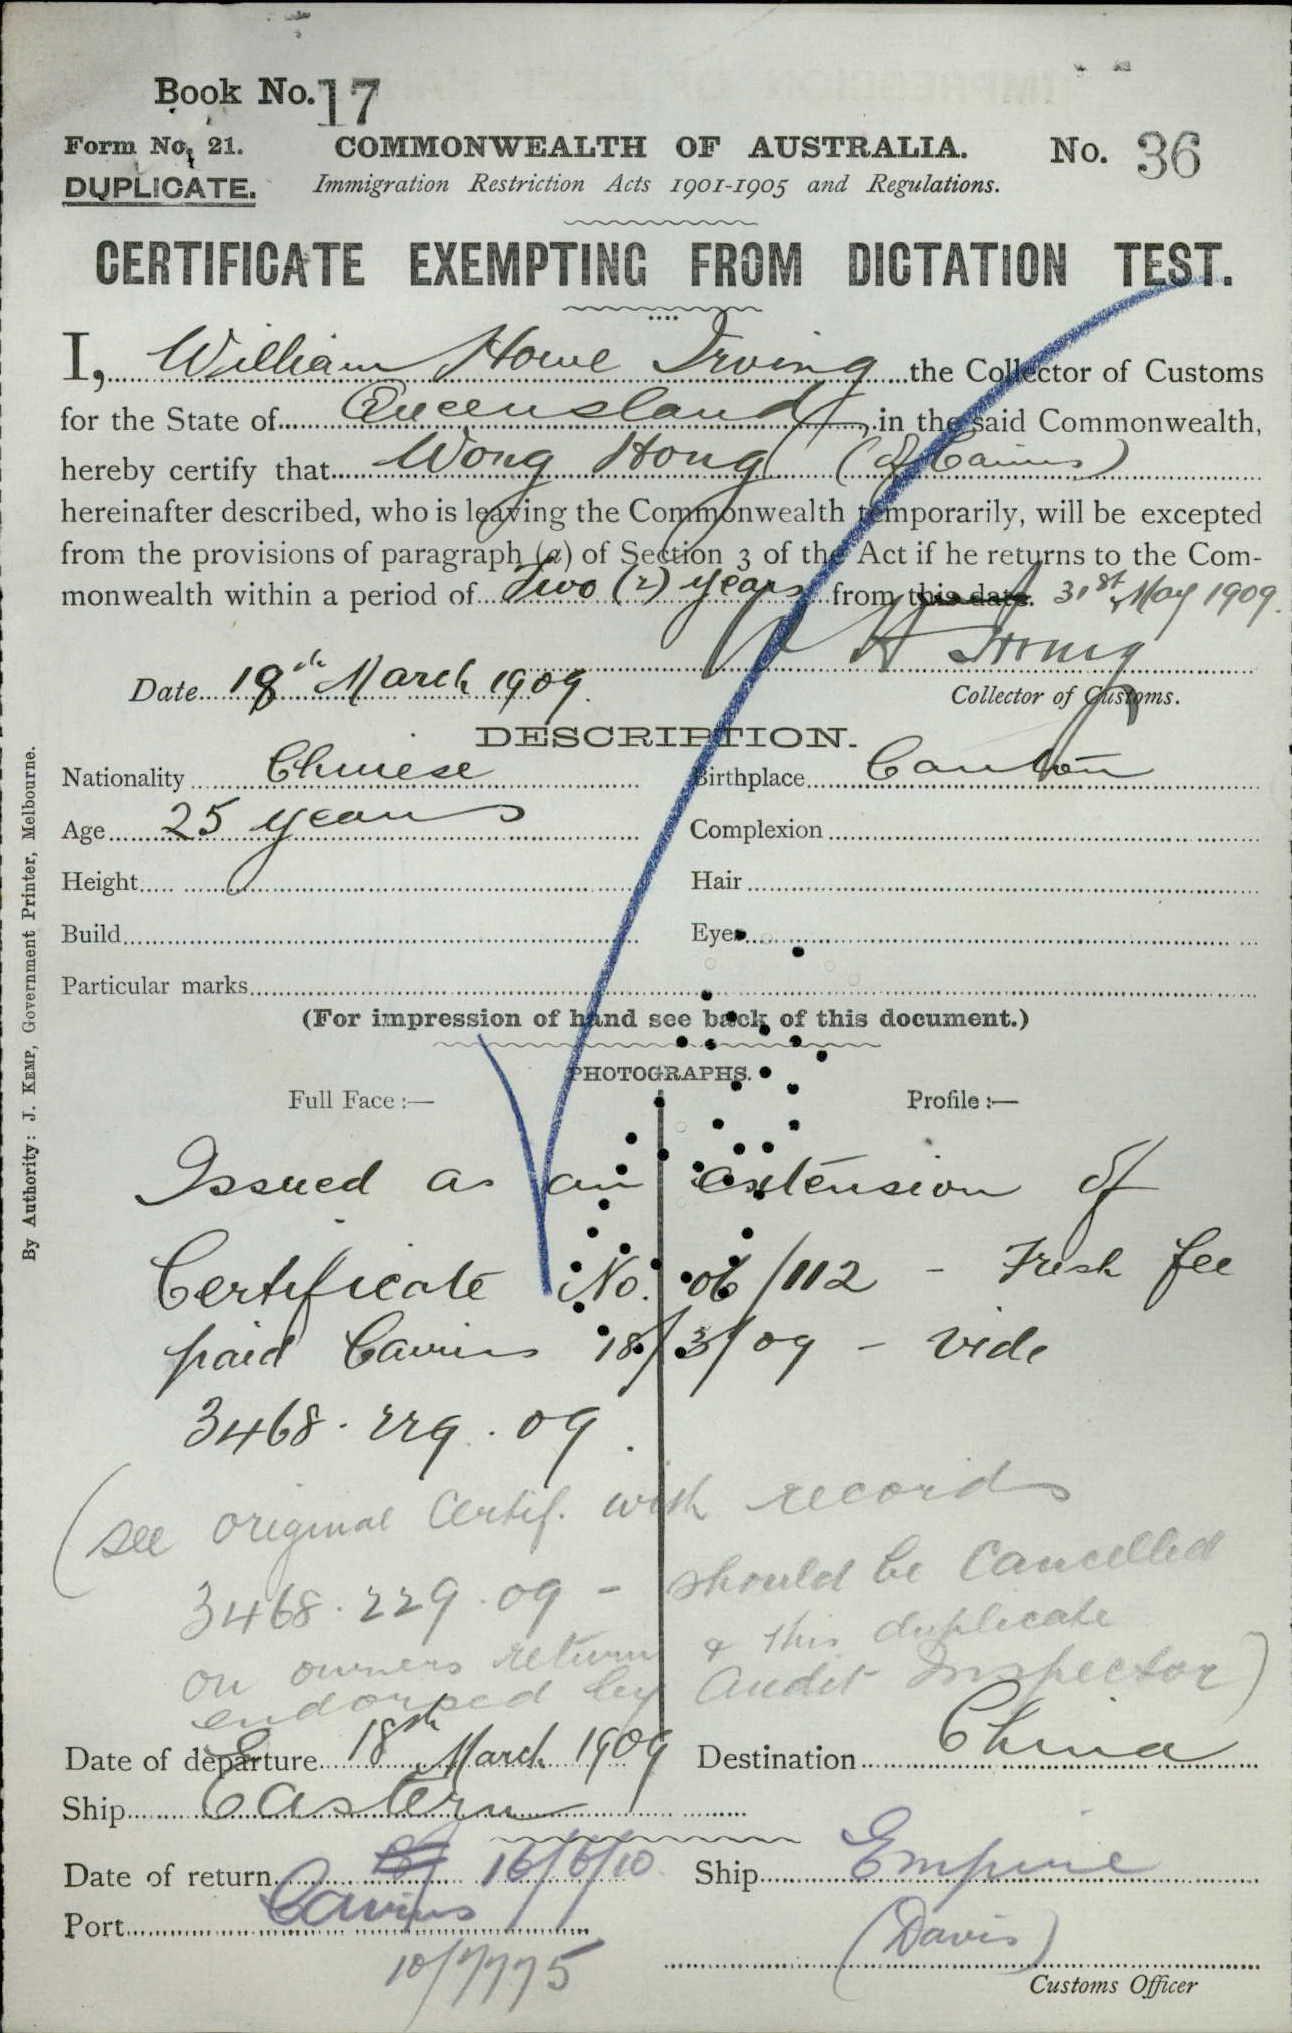 Book No. 17
Form No. 21.
COMMONWEALTH OF AUSTRALIA.
No. 36
DUPLICATE.
Immigration Restriction Acts 1901-1905 and Regulations.
CERTIFICATE EXEMPTING FROM DICTATION TEST.
I, William Howe Irving the Collector of Customs
for the State of Queensland, in the said Commonwealth,
hereby certify that Wong Hong (of Cairns)
hereinafter described, who is leaving the Commonwealth temporarily, will be excepted
from the provisions of paragraph (a) of Section 3 of the Act if he returns to the Com-
monwealth within a period of Two (2) years from this date. 31st May 1909.
W H Irving
Date 18th March 1909.
Collector of Customs.
DESCRIPTION.
Nationality Chinese
Birthplace Canton
Age 25 years
Complexion
Height
Hair
Build
Eyes
Particular marks
(For impression of hand see back of this document.)
PHOTOGRAPHS.
Full Face :—
Profile :—
Issued as an extension of
Certificate No. 06/112 - Fresh fee
paid Cairns 18/3/09 - vide
3468.229.09.
(see original Certif. with records
3468.229.09 - should be cancelled
on owners return & this duplicate
endorsed by Audit Inspector)
Date of departure 18th March 1909
Destination China
Ship Eastern
Date of return 16/6/10
Ship Empire
Port Cairns
(Davis)
10/7775
Customs Officer
By Authority: J. KEMP, Government Printer, Melbourne.